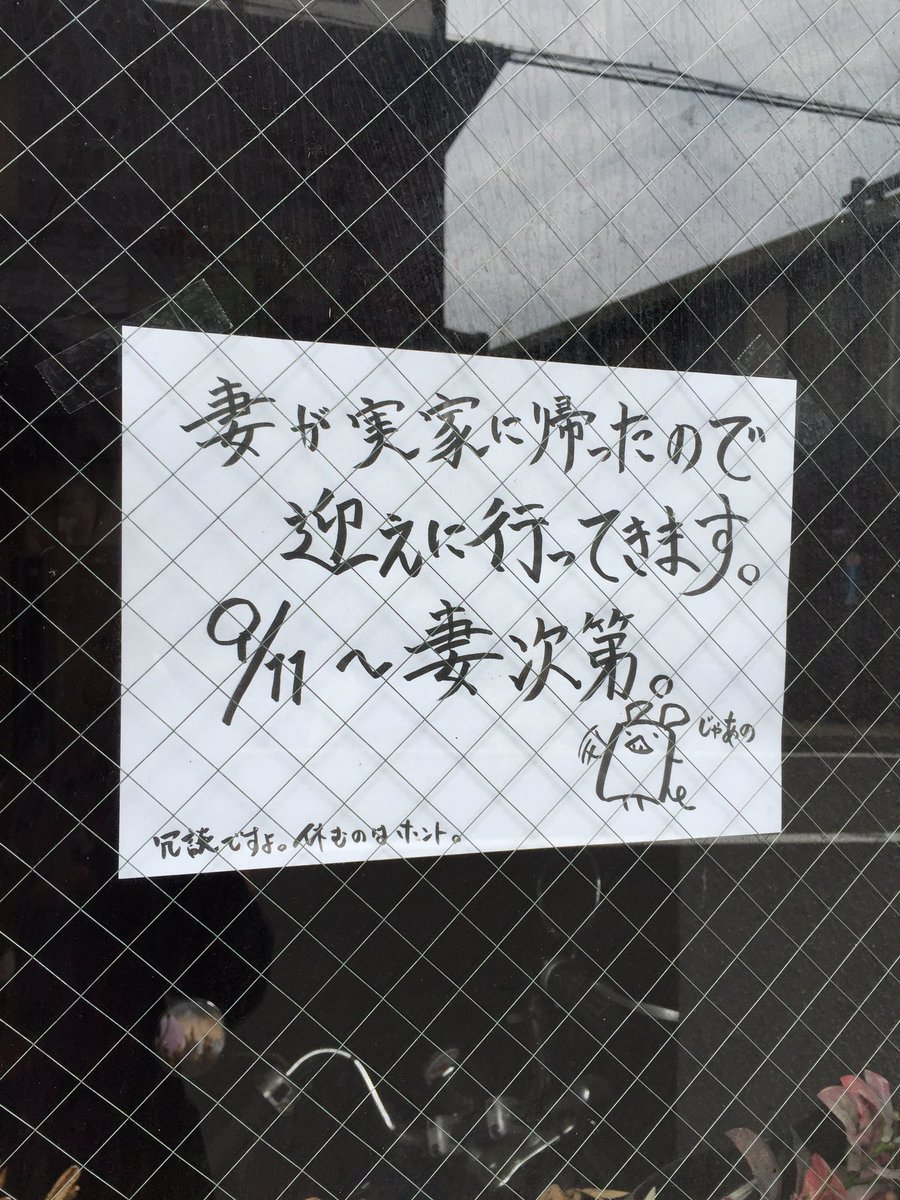 妻が実家に帰ったので
迎えに行ってきます。
9/11〜妻次第。
じゃあの
冗談ですよ。休むのはホント。